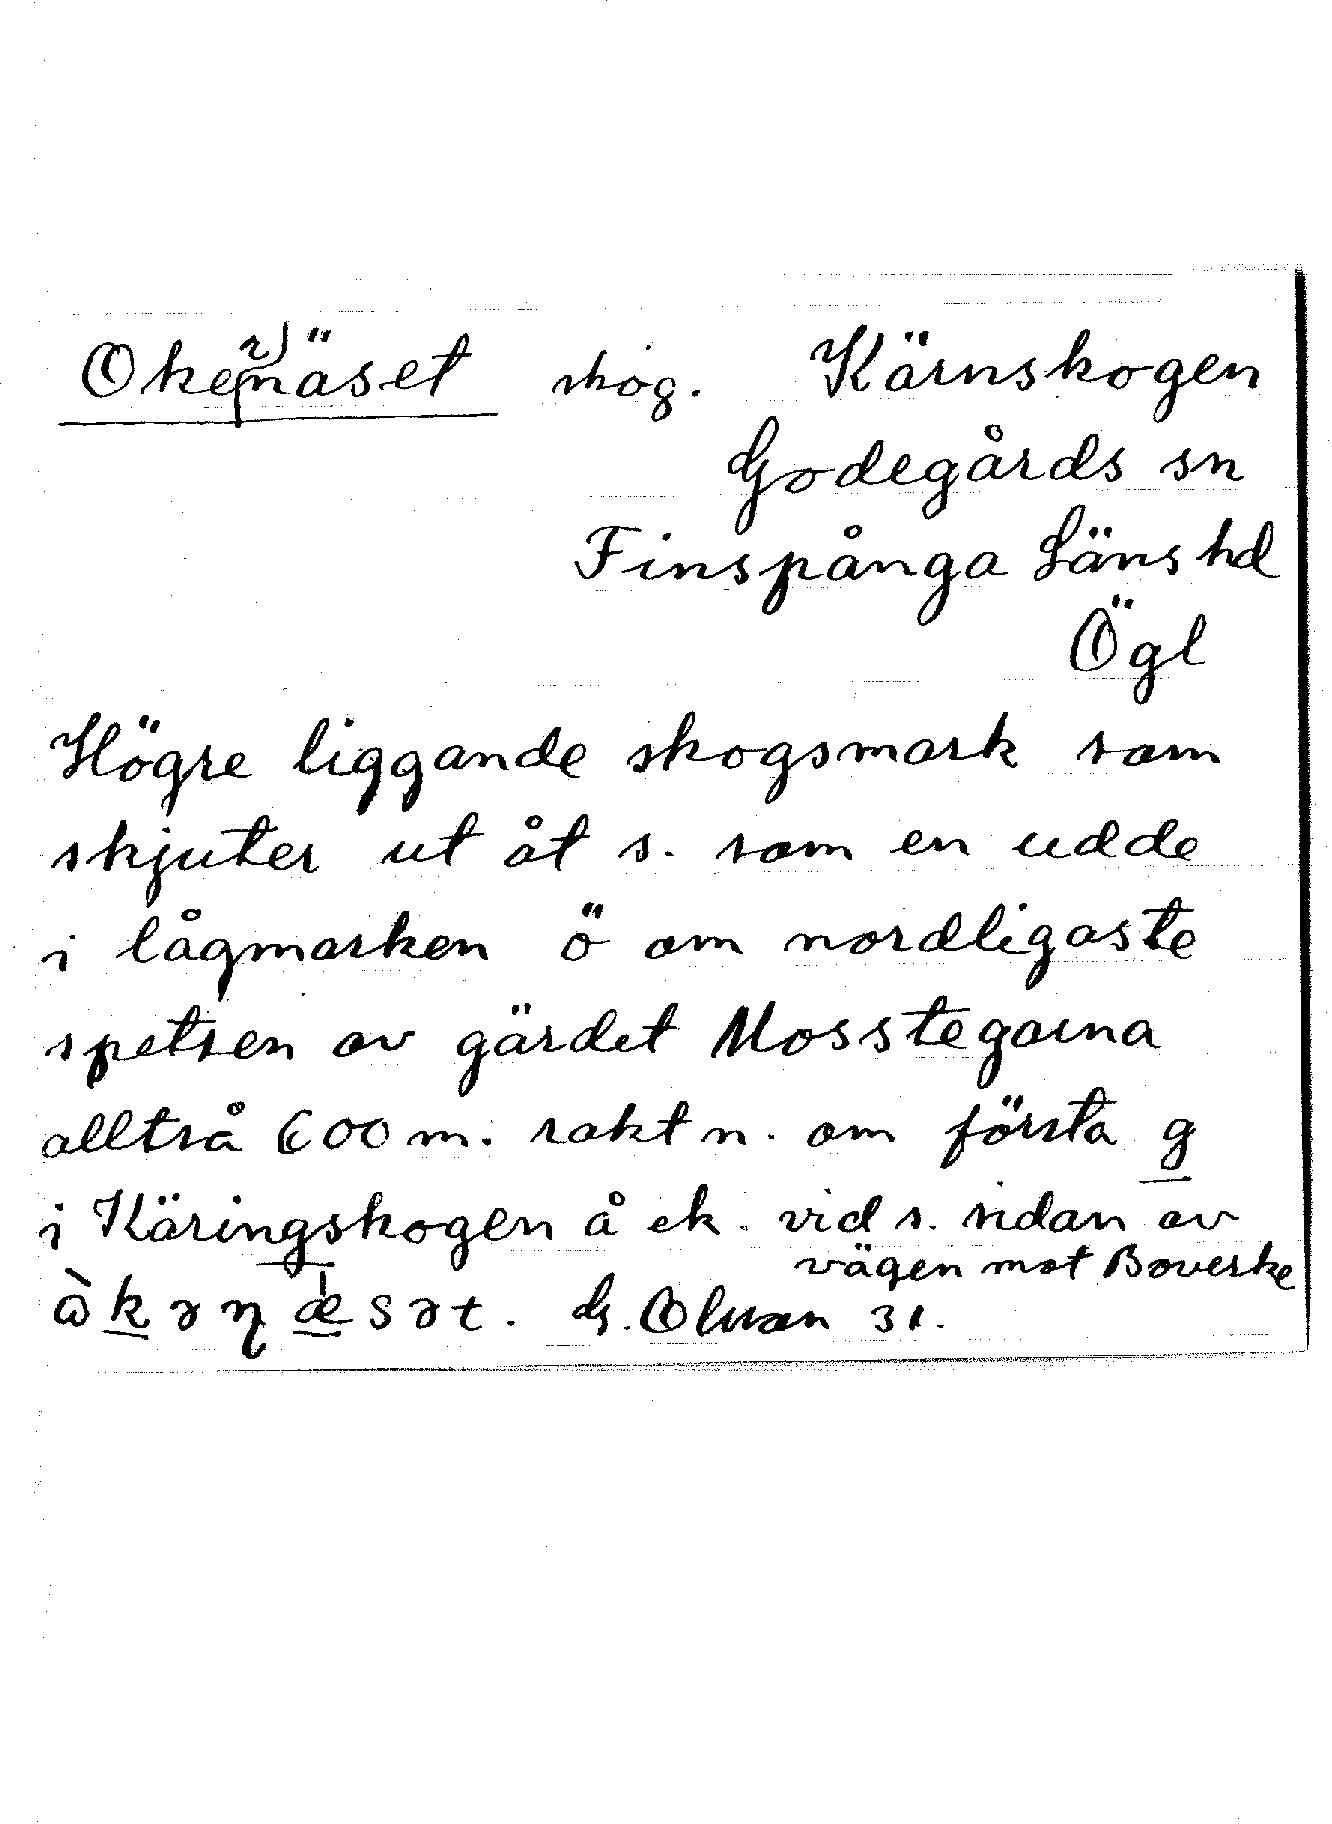 Okernäset skog. Kärnskogen
Godegårds sn
Finspånga Läns hd
Ögl
Högre liggande skogsmark som
skjuter ut åt s. som en udde
i lågmarken ö om nordligaste
spetsen av gärdet Mosstegarna
alltså 600 m. rakt n. om första g
i Käringskogen å ek. vid s. sidan av
vägen mot Boverke
G. Olwan 31.